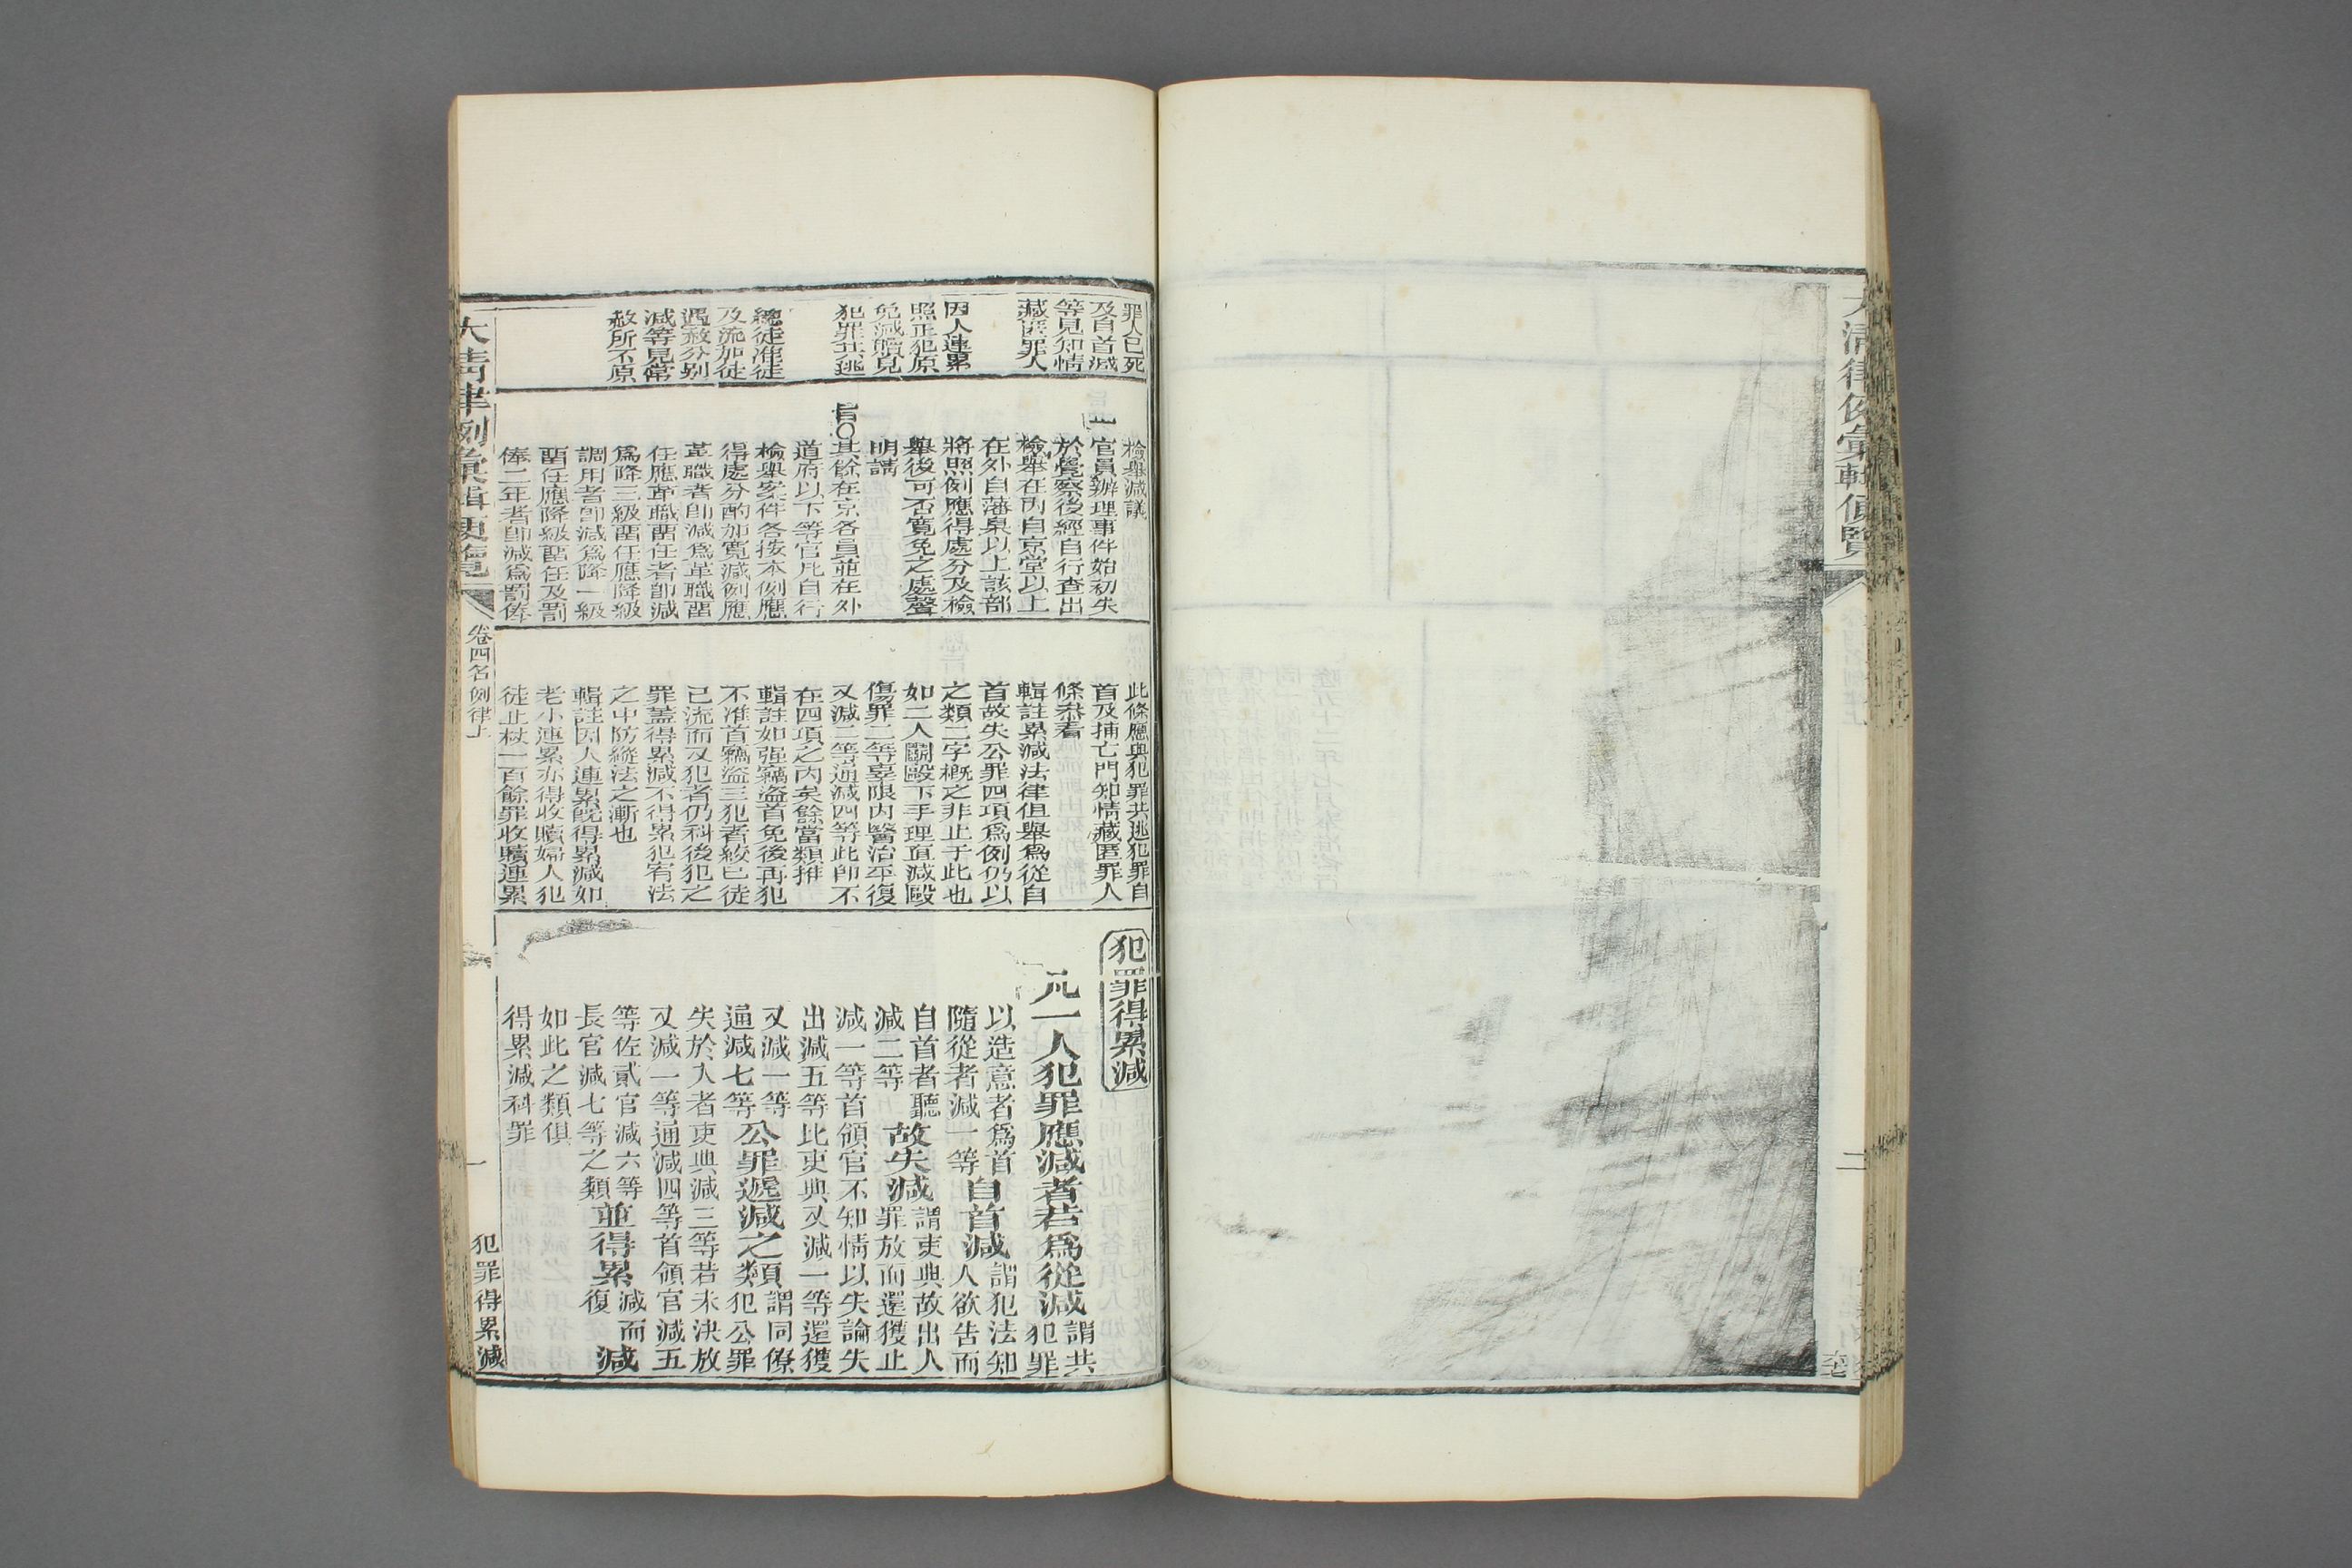 大清律例彙輯便覽
二
罪人已死
及自首減
等見知情
藏匿罪人
因人連累
照正犯原
免減贖見
犯罪共逃
總徒准徒
及流加徒
遇赦分别
減等見常
赦所不原
檢舉減議
一官員辦理事件始初失
於覺察後經自行查出
檢舉在內自京堂以上
在外自藩臬以上該部
將照例應得處分及檢
舉後可否寬免之處聲
明請
旨〇其餘在京各員並在外
道府以下等官凡自行
檢舉案件各按本例應
得處分酌加寬減例應
革職者卽減爲革職畱
任應革職畱任者卽減
爲降三級畱任應降級
調用者卽減爲降一級
畱任應降級畱任及罰
俸二年者卽減爲罰俸
此條應與犯罪共逃犯罪自
首及捕亡門知情藏匿罪人
條叅看
輯註累減法律但舉爲從自
首故失公罪四項爲例仍以
之類二字概之非止于此也
如二人鬬毆下手理直減毆
傷罪二等辜限內醫治平復
又減二等通減四等此卽不
在四項之內矣餘當類推
輯註如强竊盗首免後再犯
不准首竊盗三犯者絞已徒
已流而又犯者仍科後犯之
罪蓋得累減不得累犯宥法
之中防縱法之漸也
輯註因人連累旣得累減如
老小連累亦得收贖婦人犯
徒止杖一百餘罪收贖連累
犯罪得累減
凡一人犯罪應減者若爲從減謂共犯罪
以造意者爲首
隨從者減一等自首減謂犯法知人欲告而
自首者聽
減二等故失減謂吏典故出人罪放而還獲止
減一等首領官不知情以失論失
出減五等比吏典又減一等還獲
又減一等
通減七等公罪遞減之類謂同僚犯公罪
失於入者吏典減三等若未決放
又減一等通減四等首領官減五
等佐貳官減六等
長官減七等之類並得累減而復減
如此之類俱
得累減科罪
大清律例彙輯便覽
卷四名例律上
一
犯罪得累減